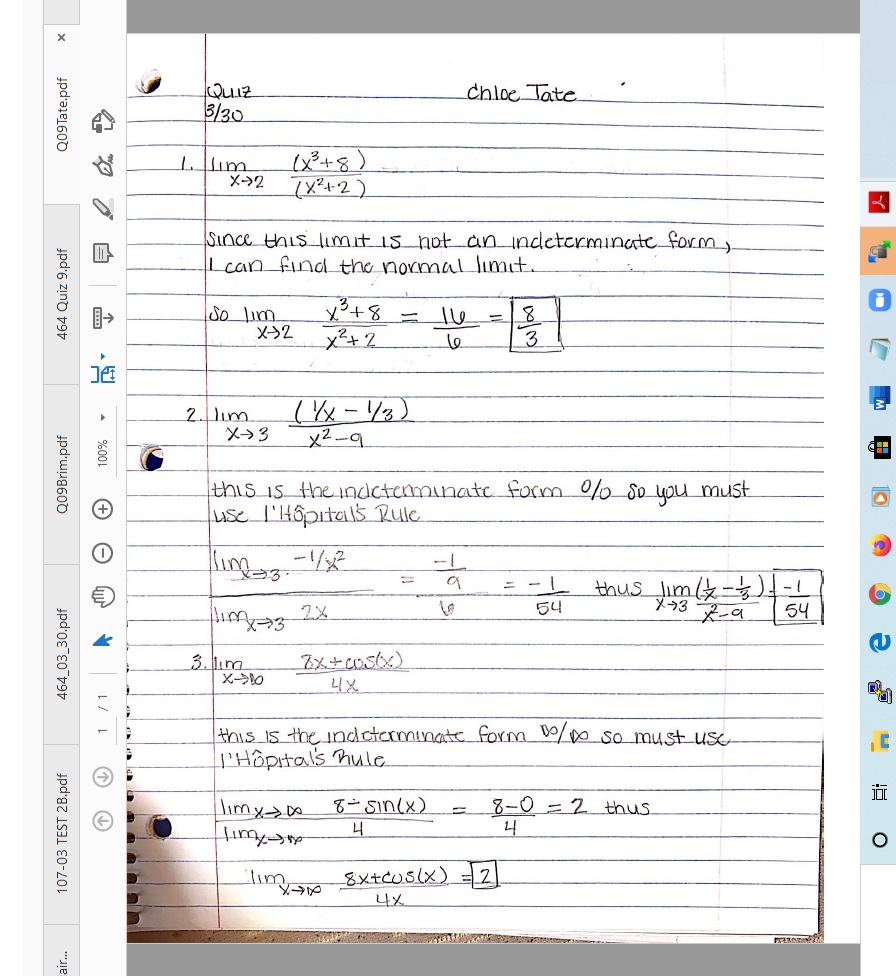 Q09Tate.pdf
464 Quiz 9.pdf
Q09Brim.pdf
464_03_30.pdf
107-03 TEST 2B.pdf
air...
100%
1 / 1
Quiz Chloe Tate
3/30
1. lim x→2 (x³+8)/(x²+2)
Since this limit is not an indeterminate form,
I can find the normal limit.
So lim x→2 x³+8/x²+2 = 16/6 = 8/3
2. lim x→3 (1/x − 1/3)/x²−9
this is the indeterminate form 0/0 so you must
use l'Hôpital's Rule
lim x→3 −1/x² / lim x→3 2x = −1/9 / 6 = −1/54 thus lim x→3 (1/x − 1/3)/x²−9 = −1/54
3. lim x→∞ 8x+cos(x)/4x
this is the indeterminate form ∞/∞ so must use
l'Hôpital's Rule
lim x→∞ 8−sin(x) / lim x→∞ 4 = 8−0/4 = 2 thus
lim x→∞ 8x+cos(x)/4x = 2